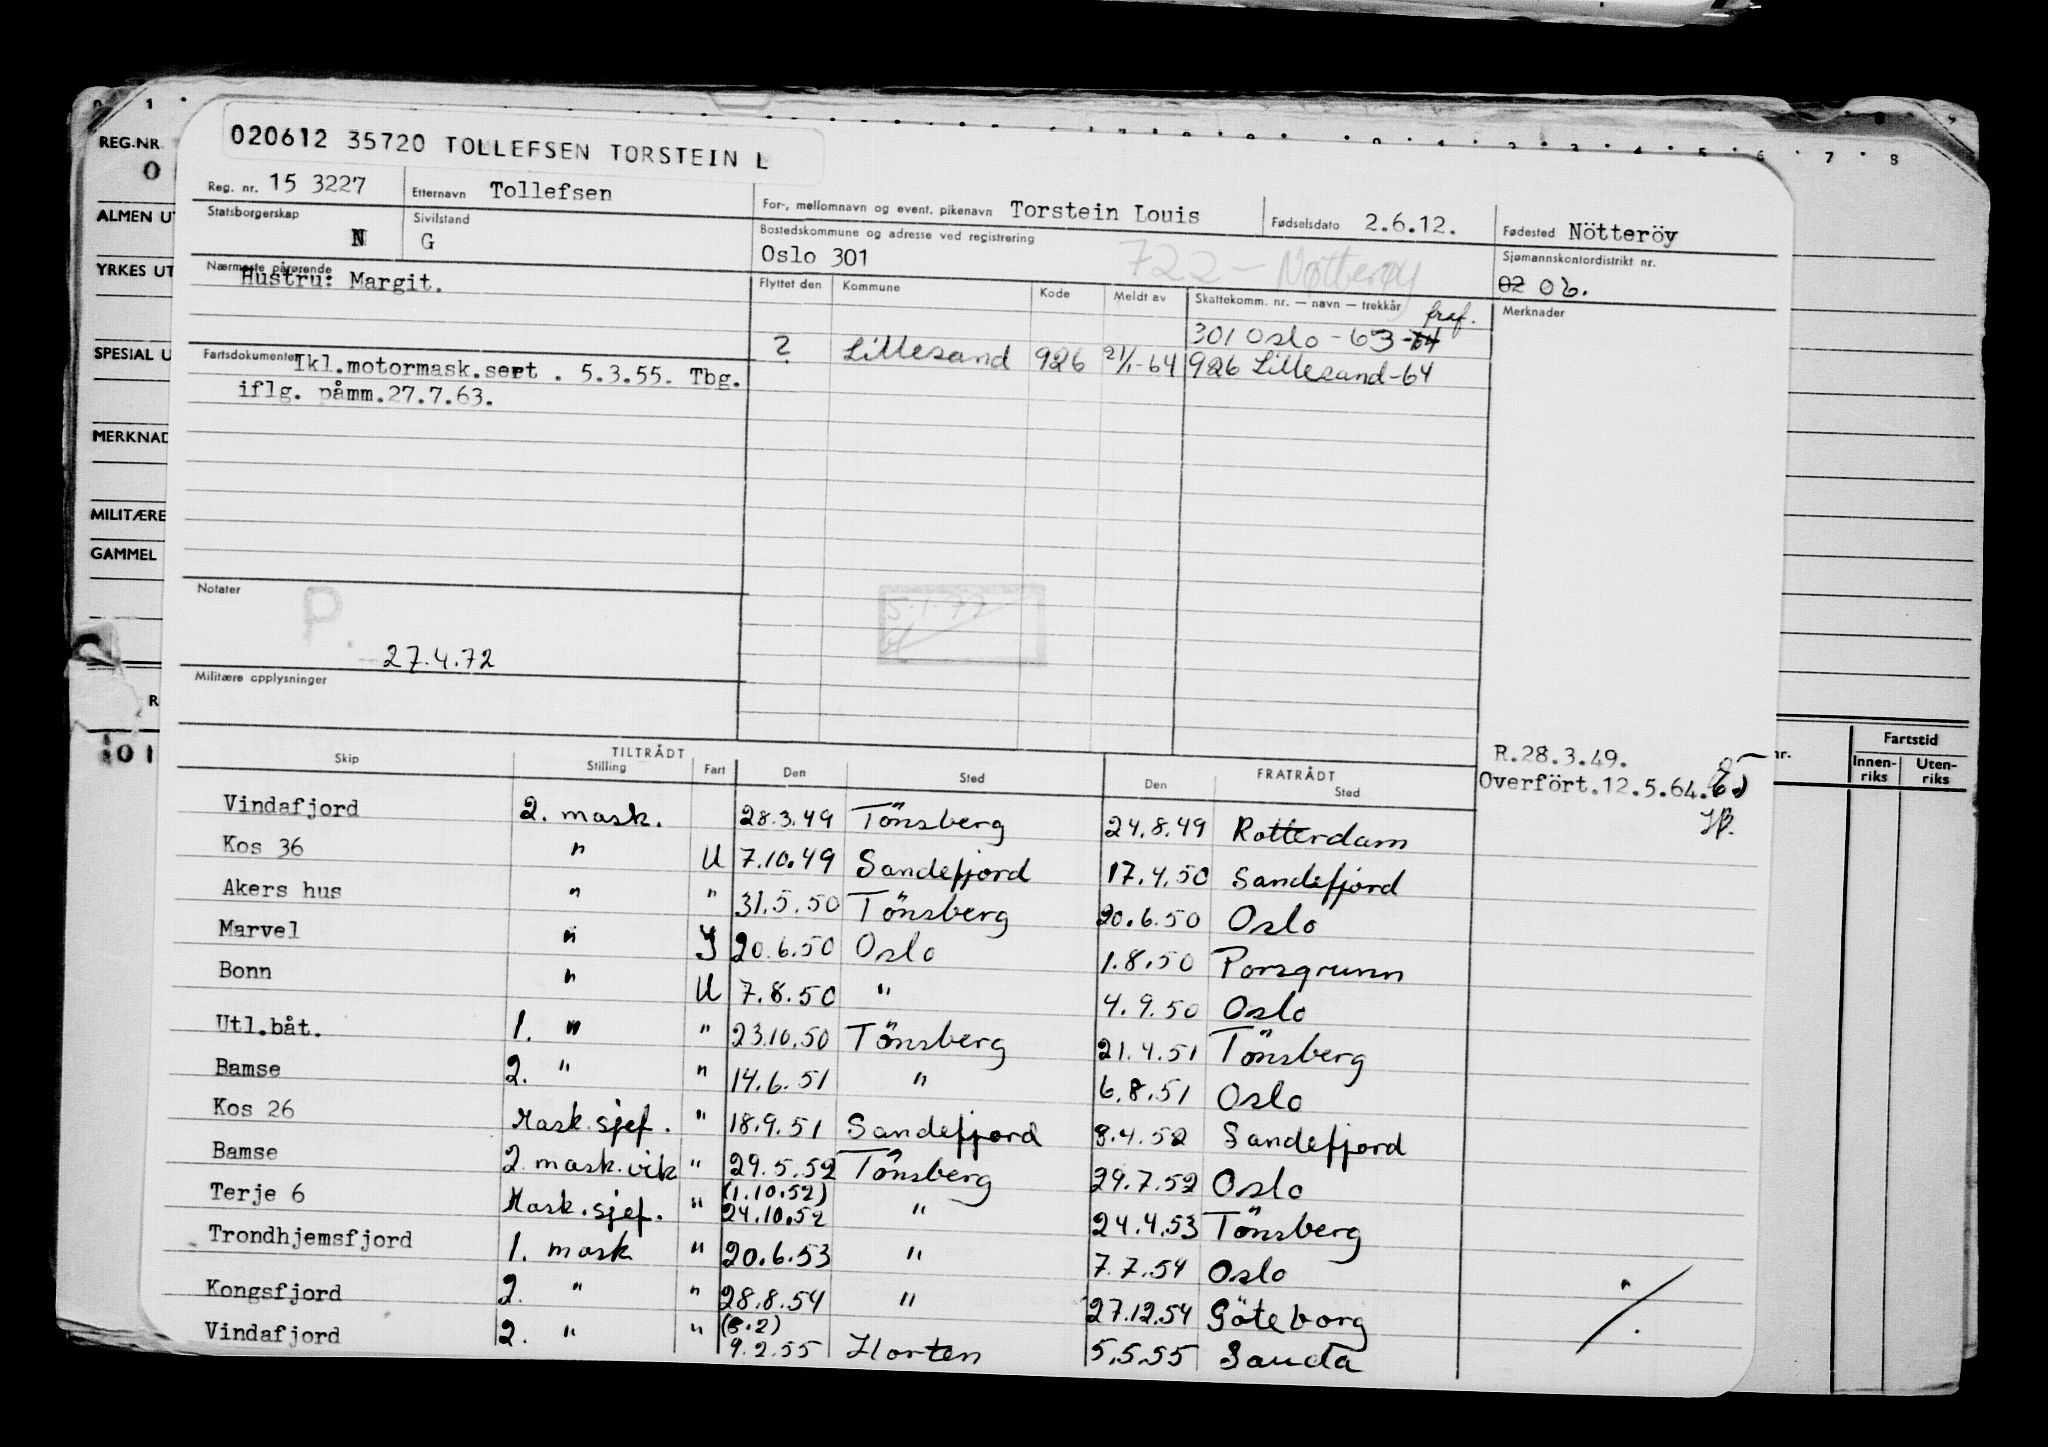 020612 35720 TOLLEFSEN TORSTEIN L
REG.NR.
0
ALMEN UT
YRKES UT
SPESIAL U
MERKNAD
MILITÆRE
GAMMEL
Reg. nr. 15 3227 Etternavn Tollefsen For-, mellomnavn og event. pikenavn Torstein Louis Fødselsdato 2.6.12. Fødested Nötteröy
Statsborgerskap N Sivilstand G Bostedskommune og adresse ved registrering Oslo 301 722 - Nøtterøy Sjømannskontordistrikt nr. 02 06.
Nærmeste pårørende Hustru: Margit.
Flyttet den Kommune Kode Meldt av Skattekomm. nr. — navn — trekkår Merknader
fraf.
301 Oslo - 63 -64
? Lillesand 926 21/1-64 926 Lillesand-64
Fartsdokumenter Ikl.motormask.sert . 5.3.55. Tbg.
iflg. påmm.27.7.63.
Notater
P.
27.4.72
5.1.77
Militære opplysninger
R.28.3.49.
Overfört.12.5.64.
Skip TILTRÅDT Stilling Fart Den Sted FRATRÅDT Den Sted
Fartstid
Innen-riks Uten-riks
Vindafjord 2. mask. 28.3.49 Tönsberg 24.8.49 Rotterdam
Kos 36 " U 7.10.49 Sandefjord 17.4.50 Sandefjord
Akers hus " " 31.5.50 Tönsberg 20.6.50 Oslo
Marvel " I 20.6.50 Oslo 1.8.50 Porsgrunn
Bonn " U 7.8.50 " 4.9.50 Oslo
Utl.båt. 1. " " 23.10.50 Tönsberg 21.4.51 Tönsberg
Bamse 2. " " 14.6.51 " 6.8.51 Oslo
Kos 26 Mask.sjef. " 18.9.51 Sandefjord 8.4.52 Sandefjord
Bamse 2. mask.vik " 29.5.52 Tönsberg 29.7.52 Oslo
Terje 6 Mask.sjef. " (1.10.52) 24.10.52 " 24.4.53 Tönsberg
Trondhjemsfjord 1. mask " 20.6.53 " 7.7.54 Oslo
Kongsfjord 2. " " 28.8.54 " 27.12.54 Göteborg
Vindafjord 2. " " (8.2) 9.2.55 Horten 5.5.55 Sauda